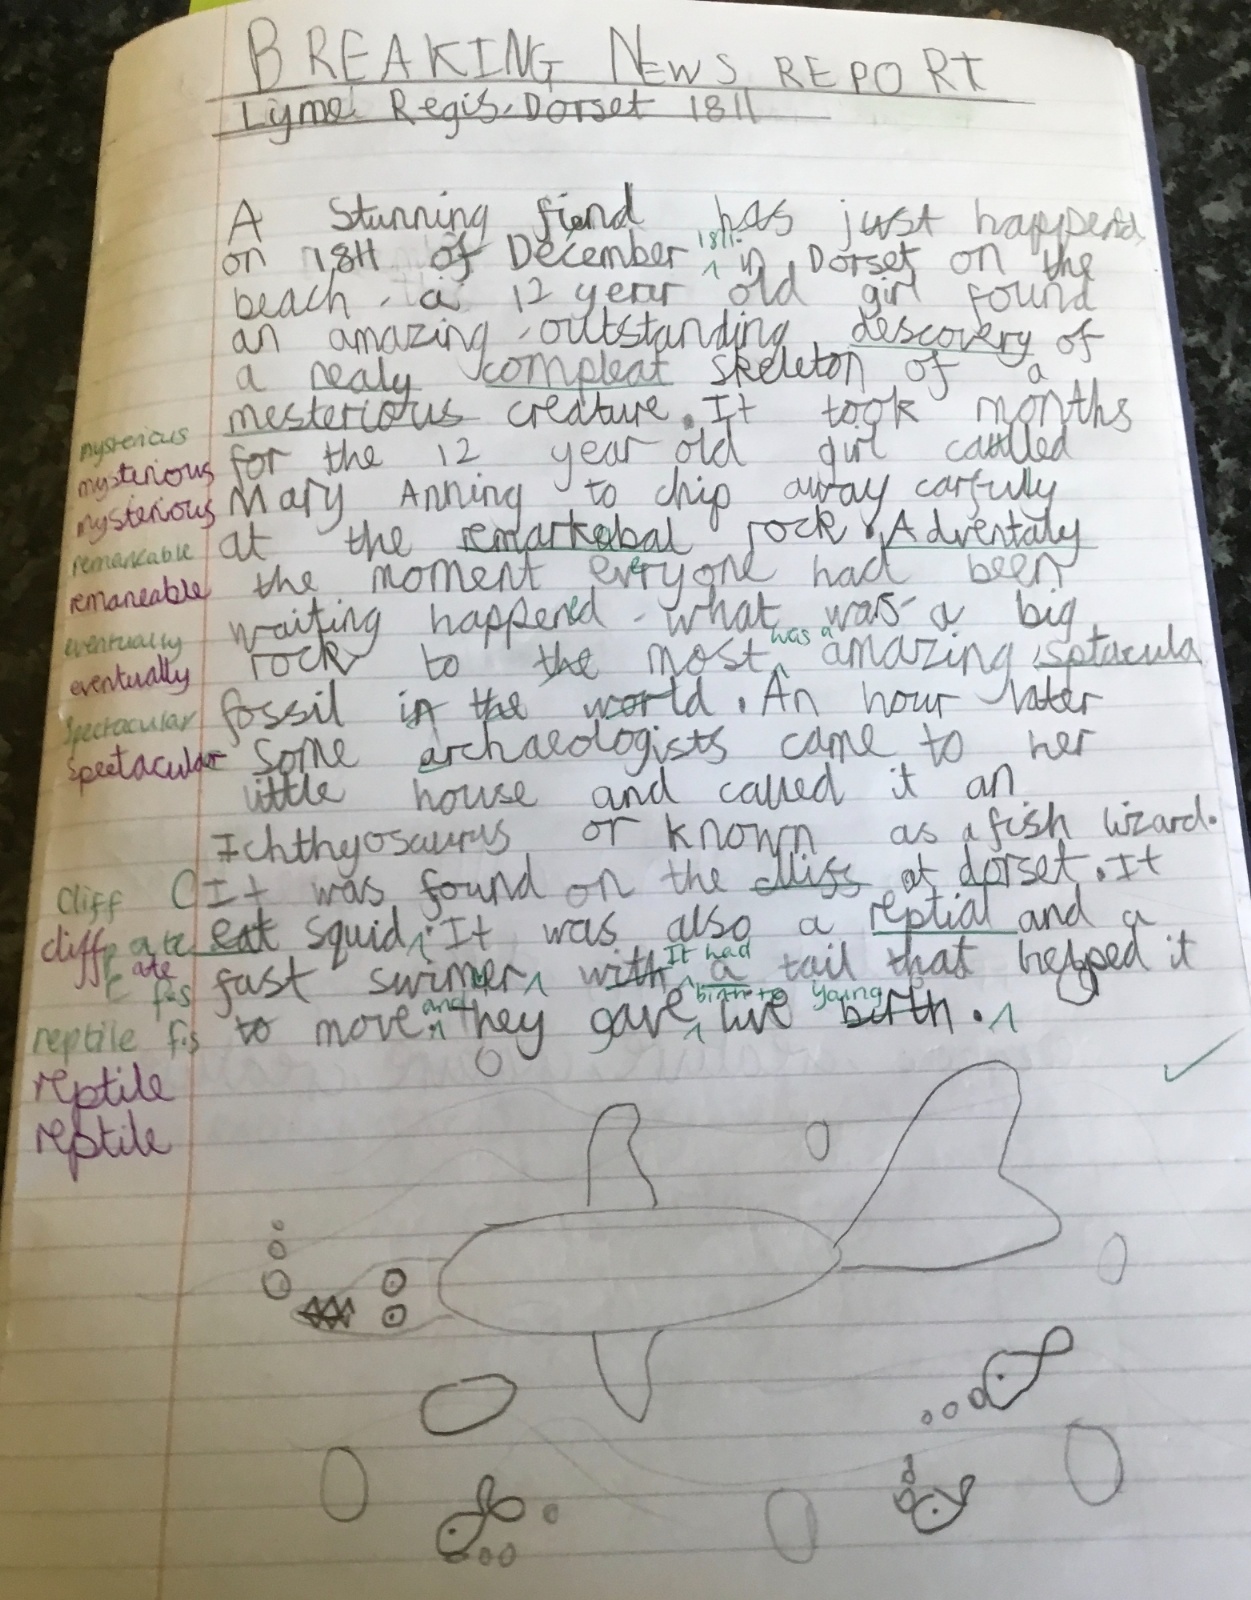 BREAKING NEWS REPORT
Lyme Regis, Dorset 1811
A Stunning find has just happend
on 18th of December 1811. in Dorset on the
beach, a 12 year old girl found
an amazing, outstanding descovery of
a nealy compleat skeleton of a
mesterious creature. It took months
mysterious
for the 12 year old girl called
mysterious
Mary Anning to chip away carfully
mysterious
at the remarkabal rock. Adventaly
remarkable
the moment everyone had been
remareable
waiting happened. what was a big
eventually
rock to the most was a amazing, sptacula
eventually
fossil in the world. An hour later
spectacular
some archaeologists came to her
spectacular
little house and called it an
Ichthyosaurus or known as a fish lizard.
It was found on the cliffs at dorset. It
cliff C
eat squid. It was also a reptial and a
cliff ate
fast swimer with It had a tail that helped it
ate
to move. and they gave birth to live young birth.
reptile
reptile
reptile